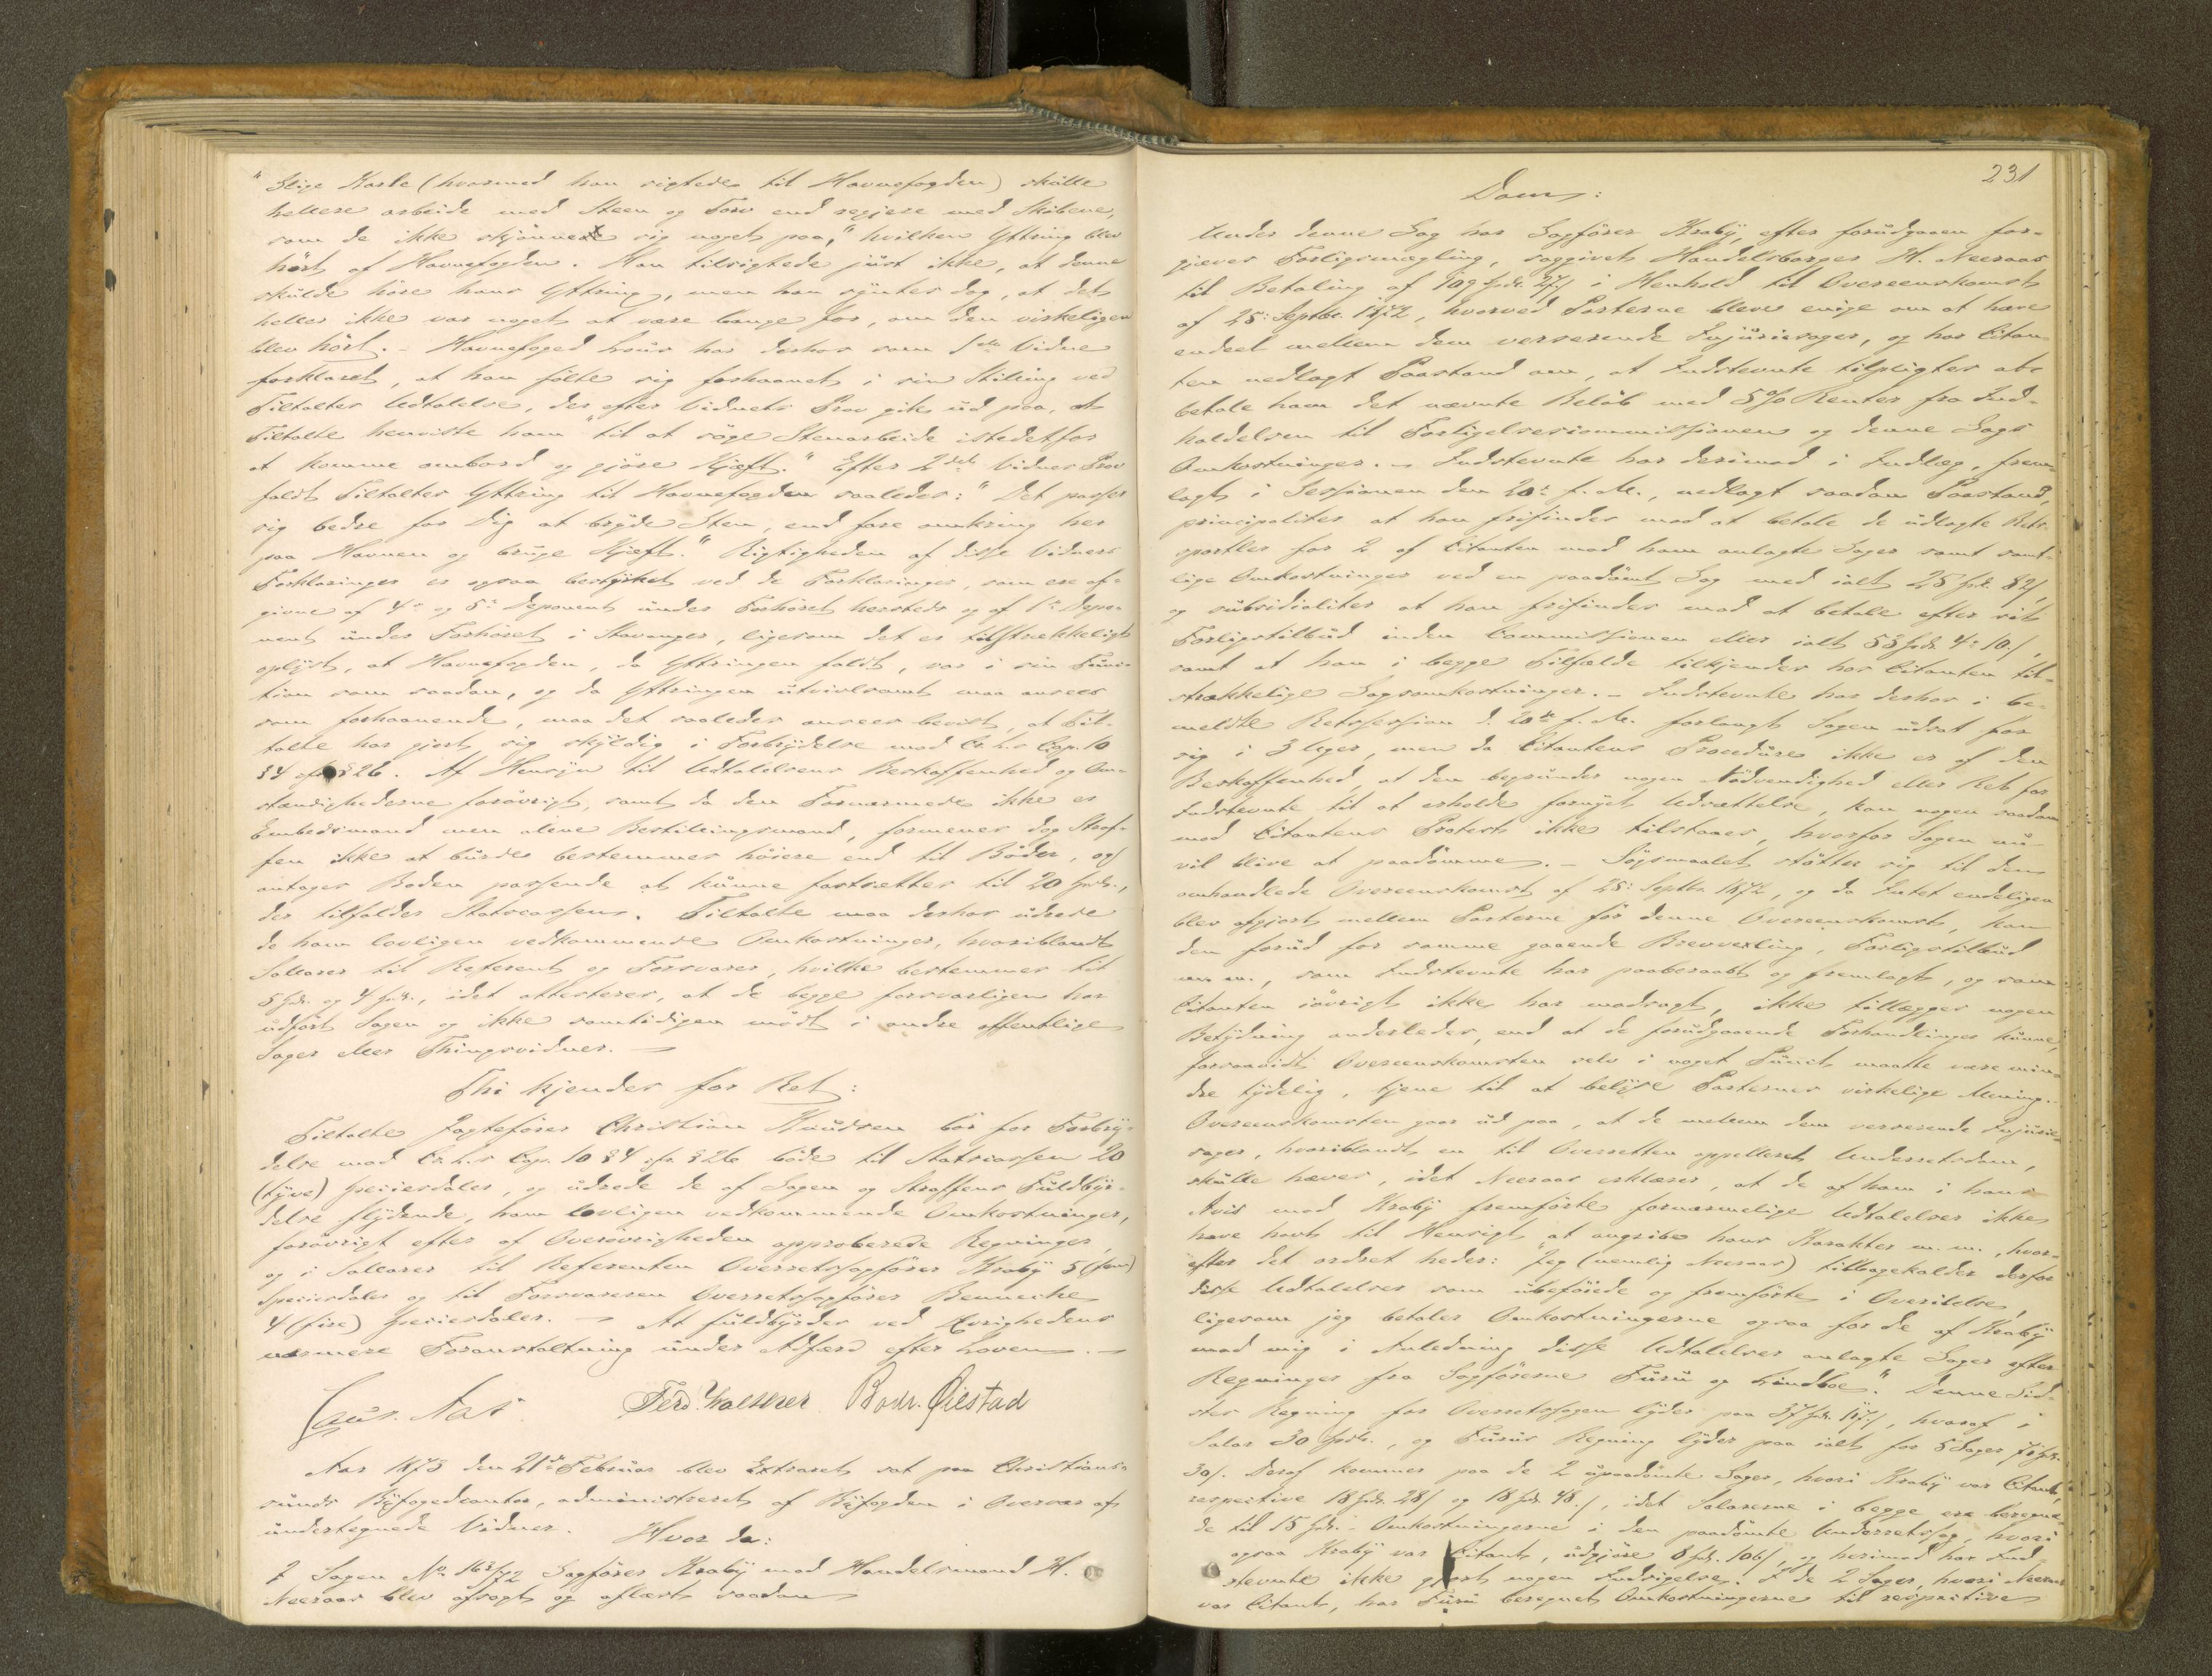 "Slige Karle (hvormed han sigtede til Havnefogden) skulle
hellere arbeide med Steen og Torv end regjere med Skibene,
som de ikke skjönnede sig noget paa," hvilken Yttring blev
hört af Havnefogden. Han tilsigtede just ikke, at denne
skulde höre hans Yttring, men han syntes dog, at det
heller ikke var noget at være bange for, om den virkeligen
blev hört. – Havnefoged har derhos som 1ste Vidne
forklaret, at han fölte sig forhaanet i sin Stilling ved
Tiltaltes Udtalelse, der efter Vidnets Prov gik ud paa, at
Tiltalte henviste ham "til at söge Stenarbeide istedetfor
at komme ombord og gjöre Kjæft." Efter 2det Vidnes Prov
faldt Tiltaltes Yttring til Havnefogden saaledes: "Det passer
sig bedre for Dig at bryde Sten, end fare omkring her
paa Havnen og bruge Kjæft." Rigtigheden af disse Vidners
Forklaringer er ogsaa bestyrket ved de Forklaringer, som ere af-
givne af 4de og 5te Deponent under Forhöret hersteds og af 1ste Depo-
nent under Forhöret i Stavanger, ligesom det er tilstrækkeligt
oplyst, at Havnefogden, da Yttringen faldt, var i sin Func-
tion som saadan, og da Yttringen utvivlsomt maa ansees
som forhaanende, maa det saaledes ansees bevist, at Til-
talte har gjort sig skyldig i Forbrydelse mod Cr. L.s Cap. 10
§ 4 cfr § 26. Af Hensyn til Udtalelsens Beskaffenhed og Om-
stændighederne forövrigt, samt da den Fornærmede ikke er
Embedsmand men alene Bestillingsmand, formenes dog Straf-
fen ikke at burde bestemmes höiere end til Böder, og
antages Boden passende at kunne fastsættes til 20 Spdlr.,
der tilfalder Statscassen. Tiltalte maa derhos udrede
de ham lovligen vedkommende Omkostninger, hvoriblandt
Sallarer til Referent og Forsvarer, hvilke bestemmes til
5 Spdlr. og 4 Spdlr., idet attesteres, at de begge forsvarligen har
udfört Sagen og ikke samtidigen mödt i andre offentlige
Sager eller Thingsvidner. –
Thi kjendes for Ret:
Tiltalte Jagteförer Christian Knudsen bör for Forbry-
delse mod Cr. L.s Cap. 10 § 4 cfr § 26 böde til Statscassen 20
(tyve) Speciesdaler, og udrede de af Sagen og Straffens Fuldbyr-
delse flydende, ham lovligen vedkommende Omkostninger,
forövrigt efter af Overövrigheden approberede Regninger
og i Sallarer til Referenten Overretssagförer Kraby 5 (fem)
Speciesdaler og til Forsvareren Overretssagförer Bennecke
4 (fire) Speciesdaler. – At fuldbyrdes ved Övrighedens
nærmere Foranstaltning under Adfærd efter Loven. –
Ferd. Bodv. Øiestad
Aar 1873 den 21de Februar blev Extraret sat paa Christian-
sunds Byfogedcontor, administreret af Byfogden i Overvær af
undertegnede Vidner. Hvor da:
I Sagen No 163/72 Sagförer Kraby mod Handelsmand H.
Neeraas blev afsagt og oplæst saadan
231
Dom:
Under denne Sag har Sagförer Kraby, efter forudgaaen for-
gjæves Forligsmægling, saggivet Handelsborger H. Neeraas
til Betaling af 109 Spdlr. 27 ß i Henhold til Overeenskomst
af 25: Septbr. 1872, hvorved Parterne bleve enige om at hæve
endeel mellem dem verserende Injuriesager, og har Citan-
ten nedlagt Paastand om, at Indstevnte tilpligtes at
betale ham det nævnte Belöb med 5% Renter fra Ind-
kaldelsen til Forligelsescommissionen og denne Sags
Omkostninger. – Indstevnte har derimod i Indlæg, frem-
lagt i Sessionen den 20: f. M., nedlagt saadan Paastand,
principaliter at han frifindes mod at betale de udlagte Rets-
sportler for 2 af Citanten mod ham anlagte Sager samt samt-
lige Omkostninger ved en paadömt Sag med ialt 25 Spdlr. 82 ß,
og subsidialiter at han frifindes mod at betale efter sit
Forligstilbud inden Commissionen eller ialt 53 Spdlr. 4 10 ß,
samt at han i begge Tilfælde tilkjendes hos Citanten til-
strækkelige Sagsomkostninger. – Indstevnte har derhos i be-
meldte Retssession d. 20de f. M. forlangt Sagen udsat for
sig i 3 Uger, men da Citantens Procedure ikke er af den
Beskaffenhed, at den begrunder nogen Nödvendighed eller Ret for
Indstevnte til at erholde fornyet Udsættelse, kan nogen saadan
mod Citantens Protest ikke tilstaaes, hvorfor Sagen nu
vil blive at paadömme. – Sögsmaalet stötter sig til den
omhandlede Overeenskomst af 25: Septbr. 1872, og da Intet endeligen
blev afgjort mellem Parterne för denne Overeenskomst, kan
den forud for samme gaaende Brevvexling, Forligstilbud
m. m., som Indstevnte har paaberaabt og fremlagt, og som
Citanten iövrigt ikke har modsagt, ikke tillægges nogen
Betydning anderledes, end at de forudgaaende Forhandlinger kunne,
forsaavidt Overeenskomsten selv i noget Punct maatte være min-
dre tydelig, tjene til at belyse Parternes virkelige Mening. –
Overeenskomsten gaar ud paa, at de mellem dem verserende Injurie-
sager, hvoriblandt en til Overretten appelleret Underretsdom,
skulle hæves, idet Neeraas erklærer, at de af ham i hans
Avis mod Kraby fremförte fornærmelige Udtalelser ikke
have havt til Hensigt at angribe hans Karakter m. m., hvor-
efter det ordret heder: "Jeg (nemlig Neeraas) tilbagekalder derfor
disse Udtalelser som ubeföiede og fremförte i Overilelse,
ligesom jeg betaler Omkostningerne ogsaa for de af Kraby
mod mig i Anledning disse Udtalelser anlagte Sager efter
Regninger fra Sagförerne Furu og Lindboe." Denne Sid-
stes Regning for Overretssagen lyder paa 37 Spdlr. 17 ß, hvoraf i
Salar 30 Spdlr., og Furus Regning lyder paa ialt for 5 Sager
30 ß. Deraf kommer paa de 2 upaadömte Sager, hvori Kraby var Citant,
respective 18 Spdlr. 28 ß og 18 Spdlr. 48 ß, idet Salarerne i begge ere beregne-
de til 15 Spdlr. Omkostningerne i den paadömte Underretssag, hvori
ogsaa Kraby var Citant, udgjöre 8 Spdlr. 106 ß, og herimod har Ind-
stevnte ikke gjort nogen Indsigelse. I de 2 Sager, hvori Neeraas
var Citant, har Furu beregnet Omkostningerne til respective